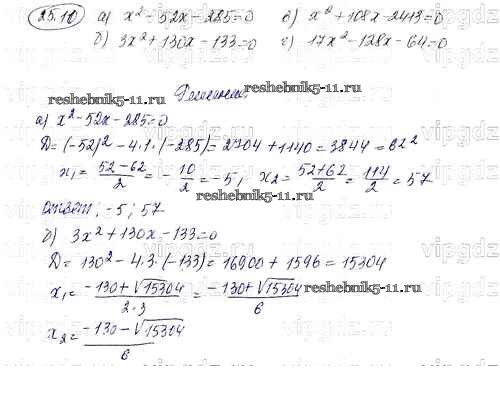 25.10 а) x² - 52x - 285 = 0 в) x² + 108x - 2413 = 0
б) 3x² + 130x - 133 = 0 г) 17x² - 128x - 64 = 0
Решение:
reshebnik5-11.ru reshebnik5-11.ru
а) x² - 52x - 285 = 0
D = (-52)² - 4·1·(-285) = 2704 + 1140 = 3844 = 62²
x₁ = (52 - 62)/2 = -10/2 = -5, x₂ = (52 + 62)/2 = 114/2 = 57
reshebnik5-11.ru
ответ: -5; 57
б) 3x² + 130x - 133 = 0
D = 130² - 4·3·(-133) = 16900 + 1596 = 15304
x₁ = (-130 + √15304)/(2·3) = (-130 + √15304)/6
reshebnik5-11.ru
x₂ = (-130 - √15304)/6